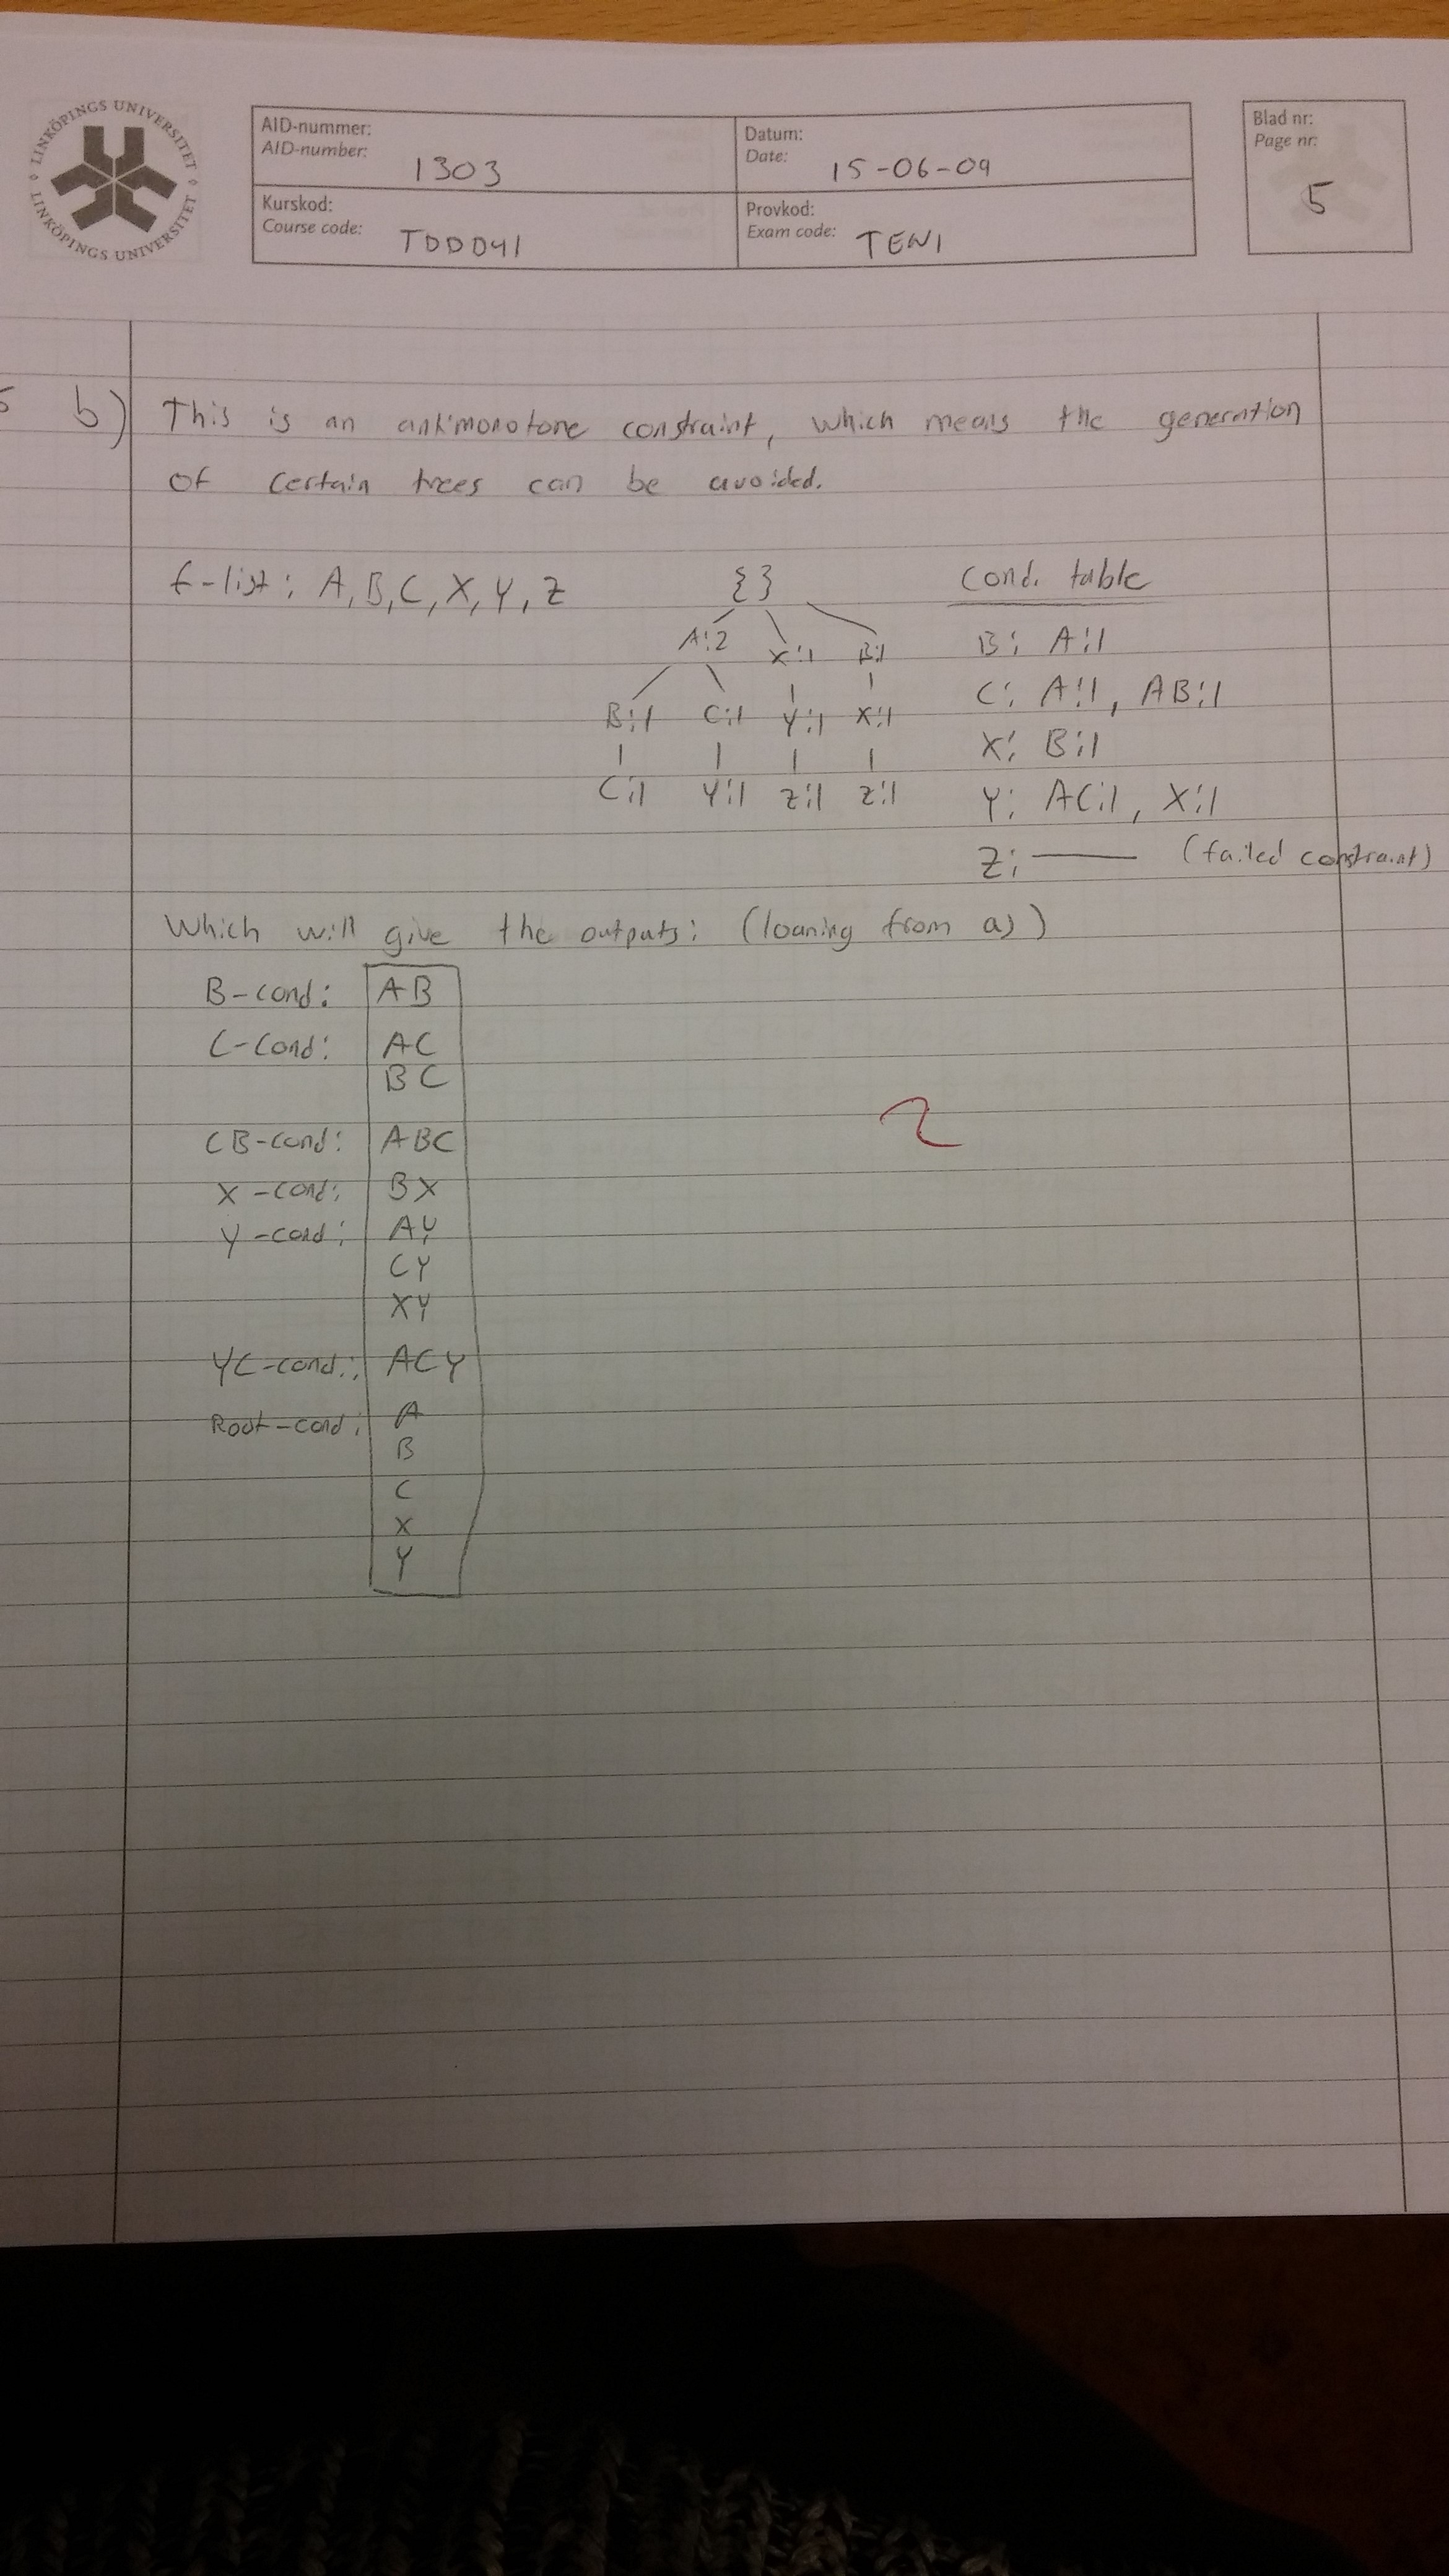 LINKÖPINGS UNIVERSITET
LINKÖPINGS UNIVERSITET
AID-nummer:
AID-number: 1303
Datum:
Date: 15-06-09
Blad nr:
Page nr:
5
Kurskod:
Course code: TDDD41
Provkod:
Exam code: TEN1
5 b) This is an antimonotone constraint, which means the generation
of certain trees can be avoided.
f-list: A, B, C, X, Y, Z {} Cond. table
A:2 X:1 B:1 B: A:1
B:1 C:1 Y:1 X:1 C: A:1, AB:1
X: B:1
C:1 Y:1 Z:1 Z:1 Y: AC:1, X:1
Z: —— (failed constraint)
Which will give the outputs: (loaning from a))
B-cond: AB
C-cond: AC
BC
CB-cond: ABC
X-cond: BX
Y-cond: AY
CY
XY
YC-cond: ACY
Root-cond: A
B
C
X
Y
2